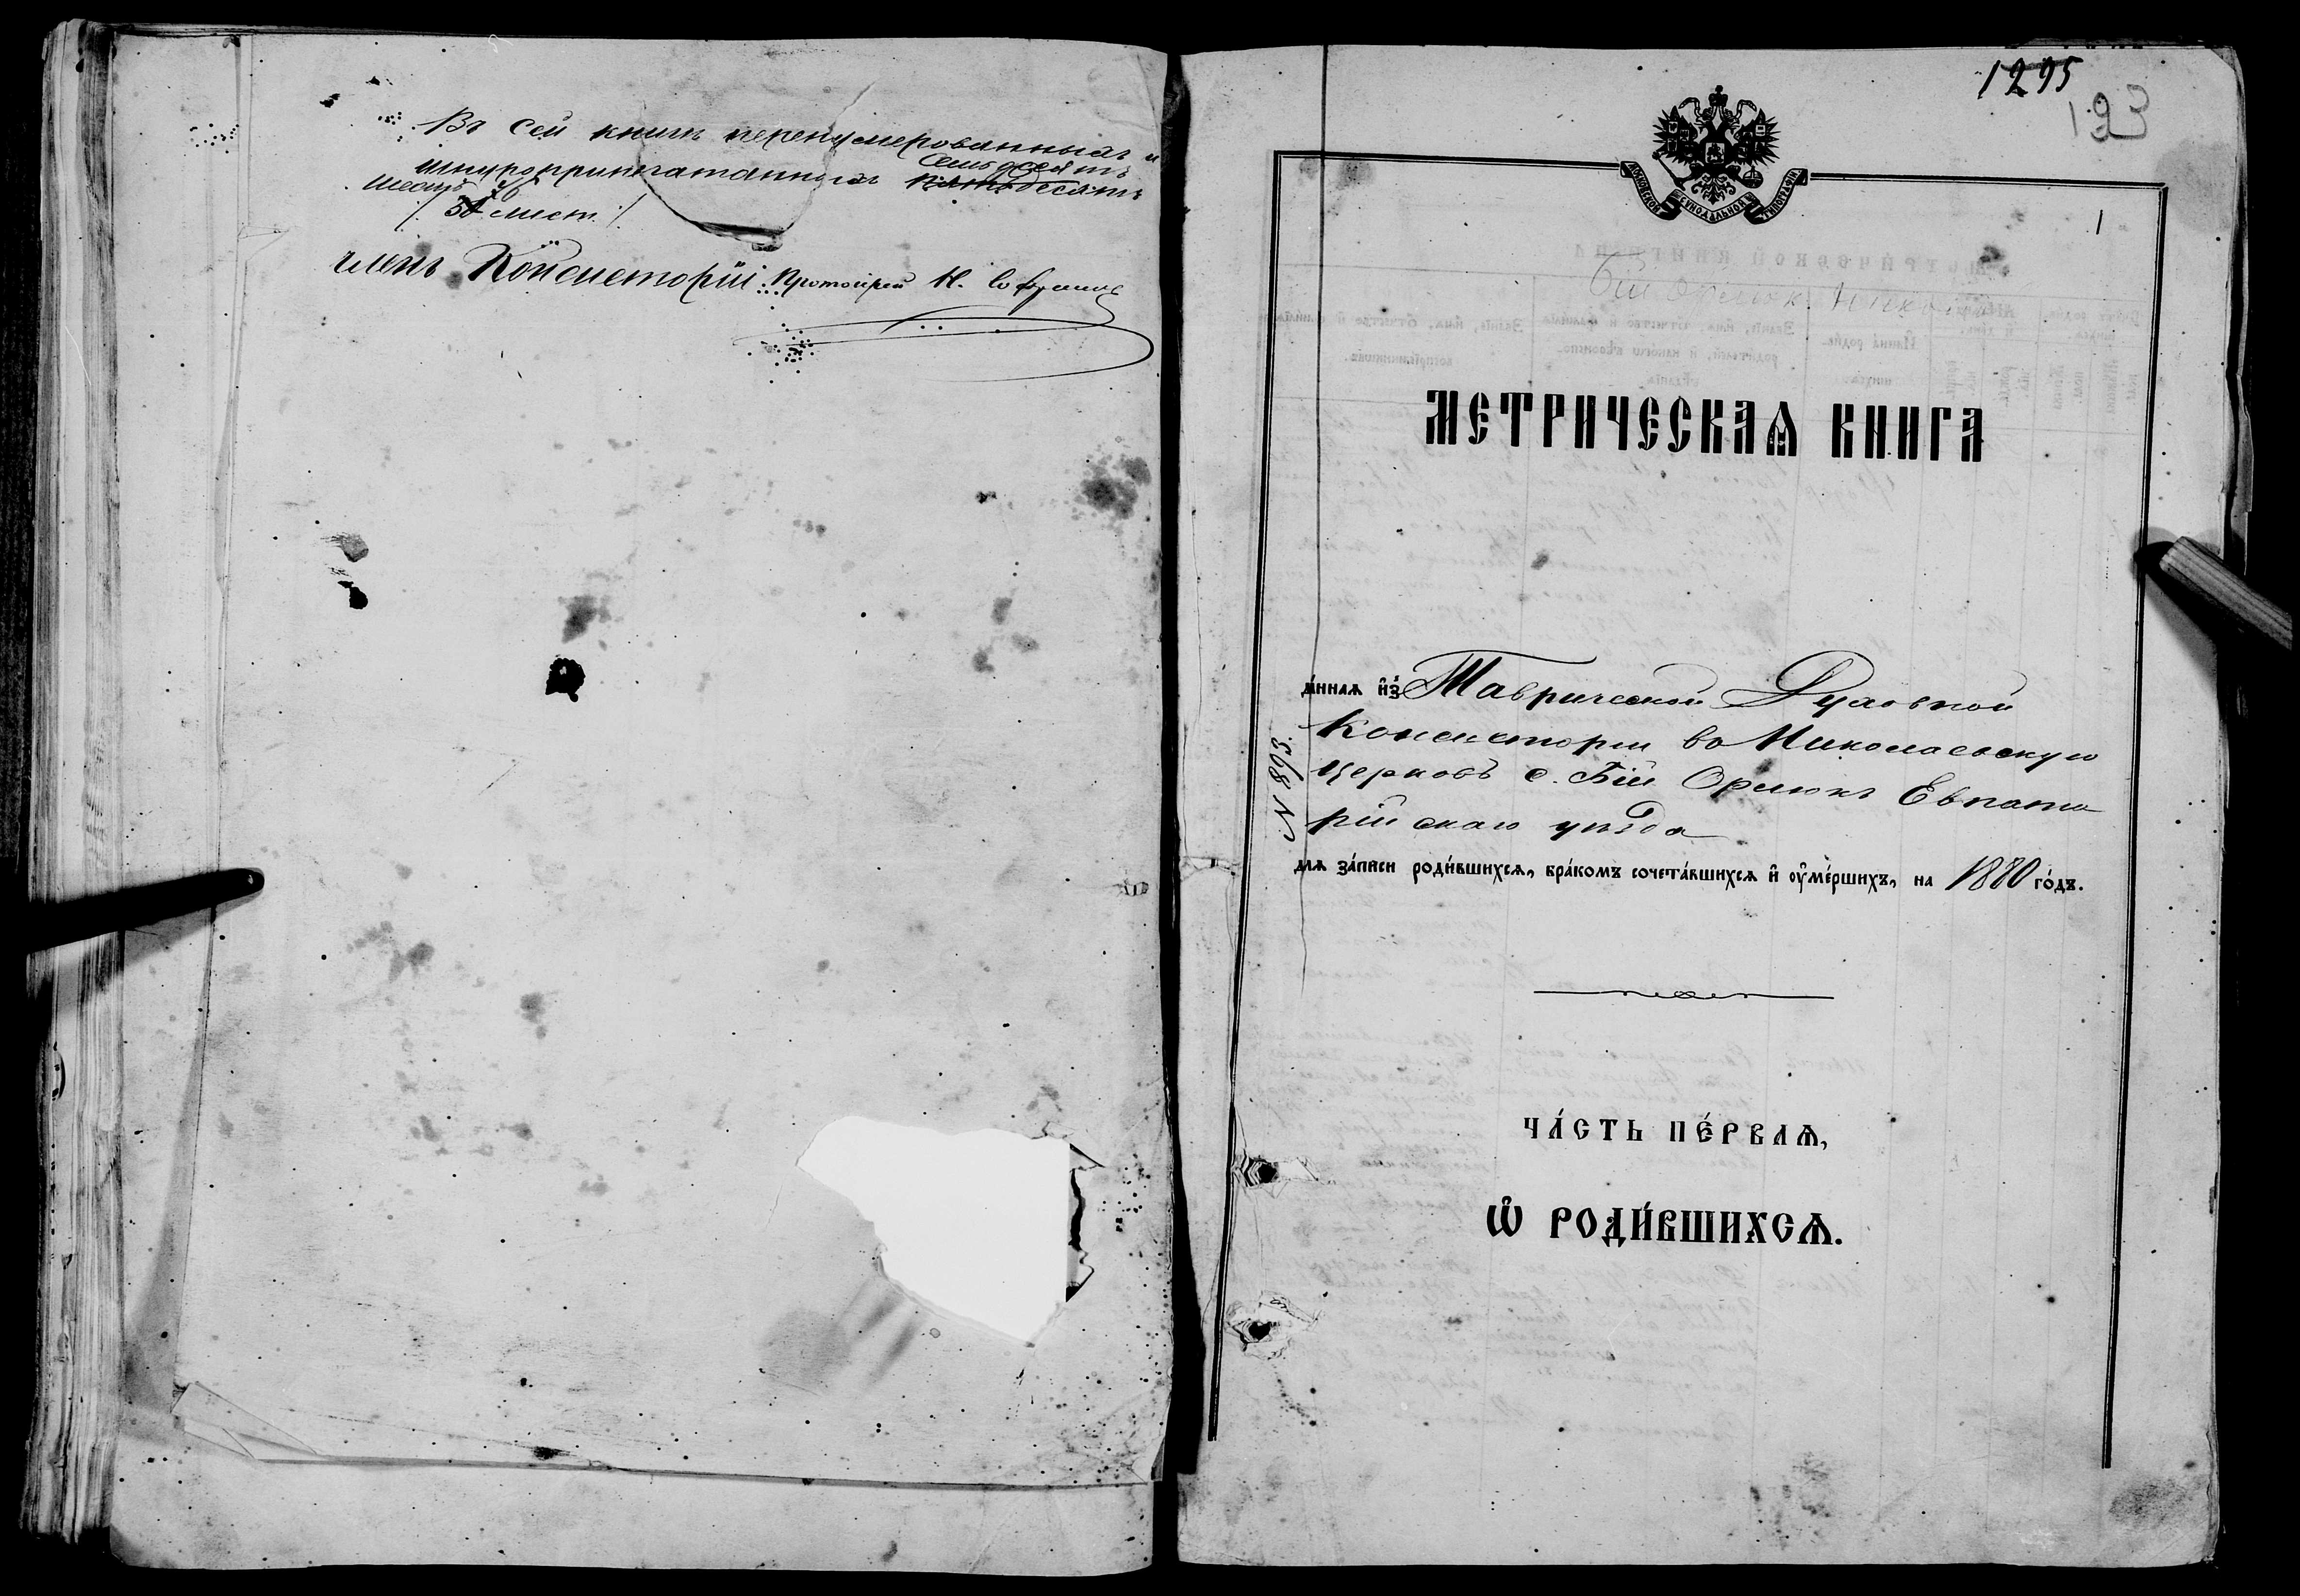 Въ сей книгѣ перенумерованныхъ и
шнуроприпечатанныхъ пятьдесятъ
семьдесятъ
шесть
листъ
членъ Консисторіи Протоіерей Н.
1295
193
МОСКОВСКОЙ СѴНОДАЛЬНОЙ ТИПОГРАФІИ
1
Бій Орлюк Никол
МЕТРИЧЕСКАѦ КНИГА
да́ннаѧ и҆з̾ Таврической Духовной
Консисторіи во Николаевскую
церковь с. Бій Орлюкъ Евпато
рійскаго уѣзда
N 893.
длѧ за́писи роди́вшихсѧ, бра́комъ сочета́вшихсѧ и҆ оу҆ме́ршихъ, на 1880 го́дъ.
ЧА́СТЬ ПЕ́РВАѦ,
Ѡ҆ РОДИ́ВШИХСѦ.